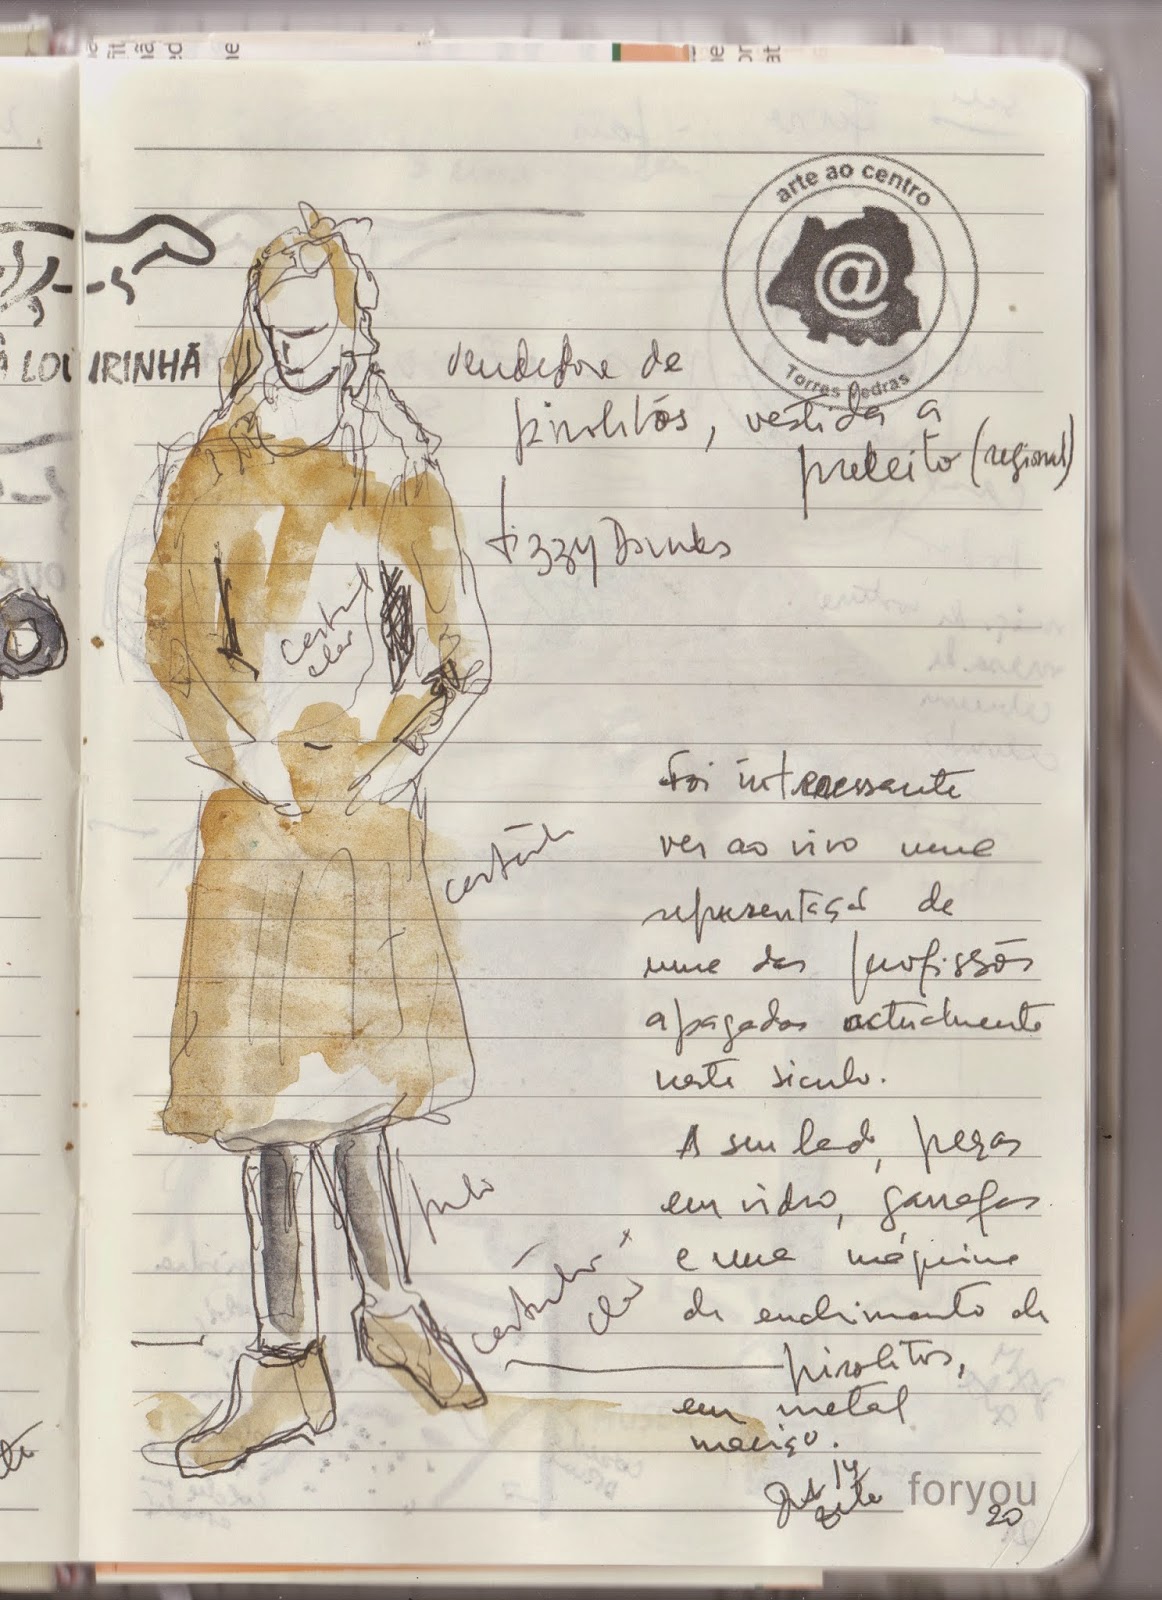 arte ao centro
@
Torres Vedras
LOURINHÃ
vendedora de
pirolitos, vestida a
preceito (regional)
castanho
claro
castanho
preto
castanho +
claro
Foi interessante
ver ao vivo uma
representação de
uma das profissões
apagadas actualmente
neste século.
A seu lado, peças
em vidro, garrafas
e uma máquina
de enchimento de
pirolitos,
em metal
maciço.
14
foryou
20